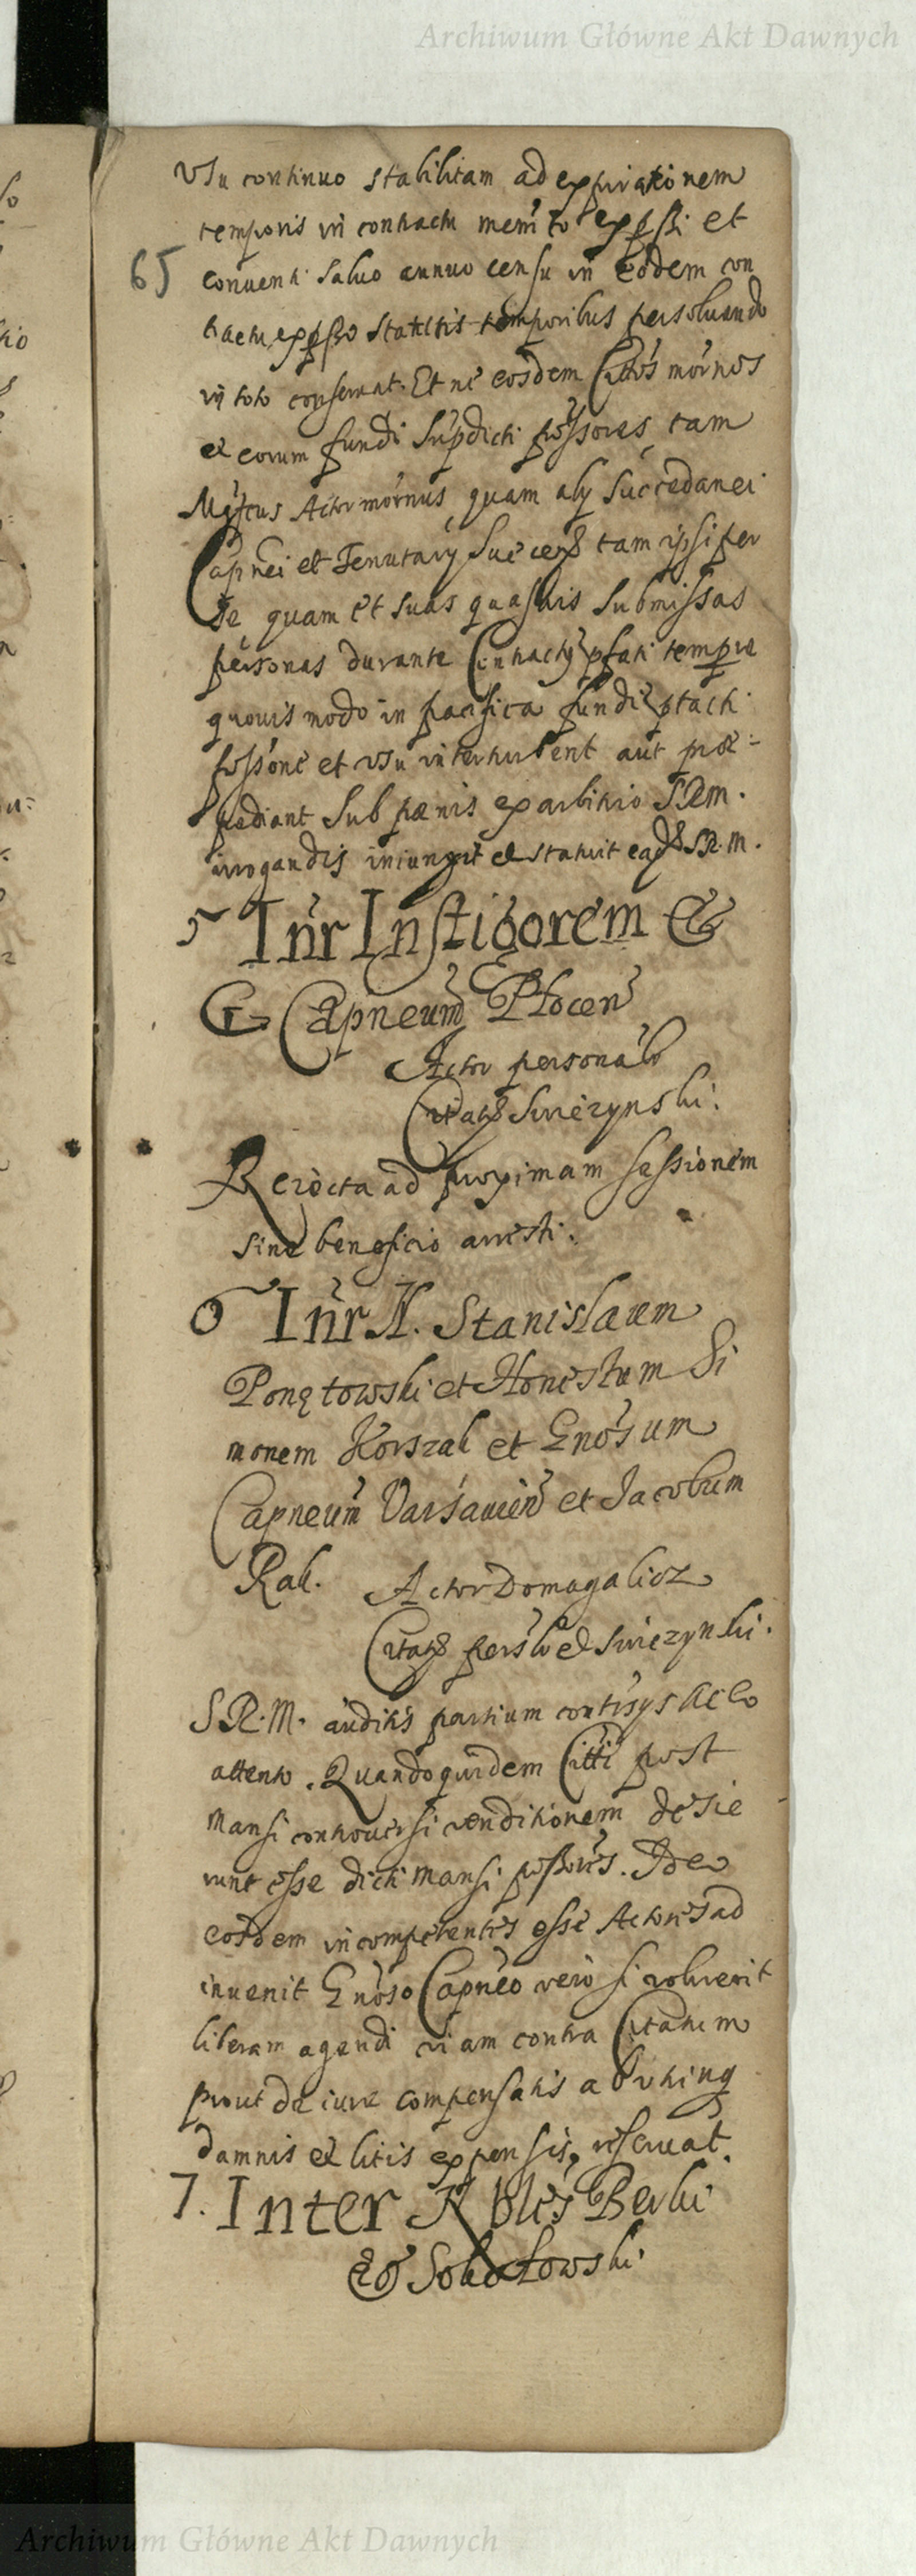 Archiwum Główne Akt Dawnych
usu continuo stabilitam ad expirationem
temporis in contractu expssi et
65
conventi salvo annuo censu in eodem con
tractu expsso temporibus persoluendo
in toto conseruat. Et ne eosdem mornos
et eorum fundi supdicti possores, tam
Actor mornus quam aly succedanei
Capnei et Tenutary tam ipsi per
se quam et suas quasuis submissas
personas durante Contractus pfati tempore
quouis modo in pacifica fundi ptacti
possone et usu interturbent aut præ-
pediant sub pænis ex arbitrio SRM.
irrogandis iniungit et statuit S.R.M.
5 Inr Instigorem &
G Capneum Płocen
Actor personalr
Citatus Swiezynski.
Reiecta ad proximam sessionem
sine beneficio arresti.
6 Inr N. Stanislaum
Ponętowski et Honestum Si
monem Korszak et Gnosum
Capneum Varsauien et Jacobum
Rak. Actor Domagalicz
Citatus et Swiezynski.
S.R.M. auditis partium contrsys
attento. Quandoquidem Citti post
mansi controuersi venditionem desie
runt esse dicti mansi possores. Ideo
eosdem incompetentes esse Actores ad
inuenit Gnoso Capneo vero si voluerit
liberam agendi viam contra Citatum
prout de iure compensatis ab utrinq
damnis et litis expensis, reseruat.
7. Inter Nbles Berki
& Sokołowski
Archiwum Główne Akt Dawnych